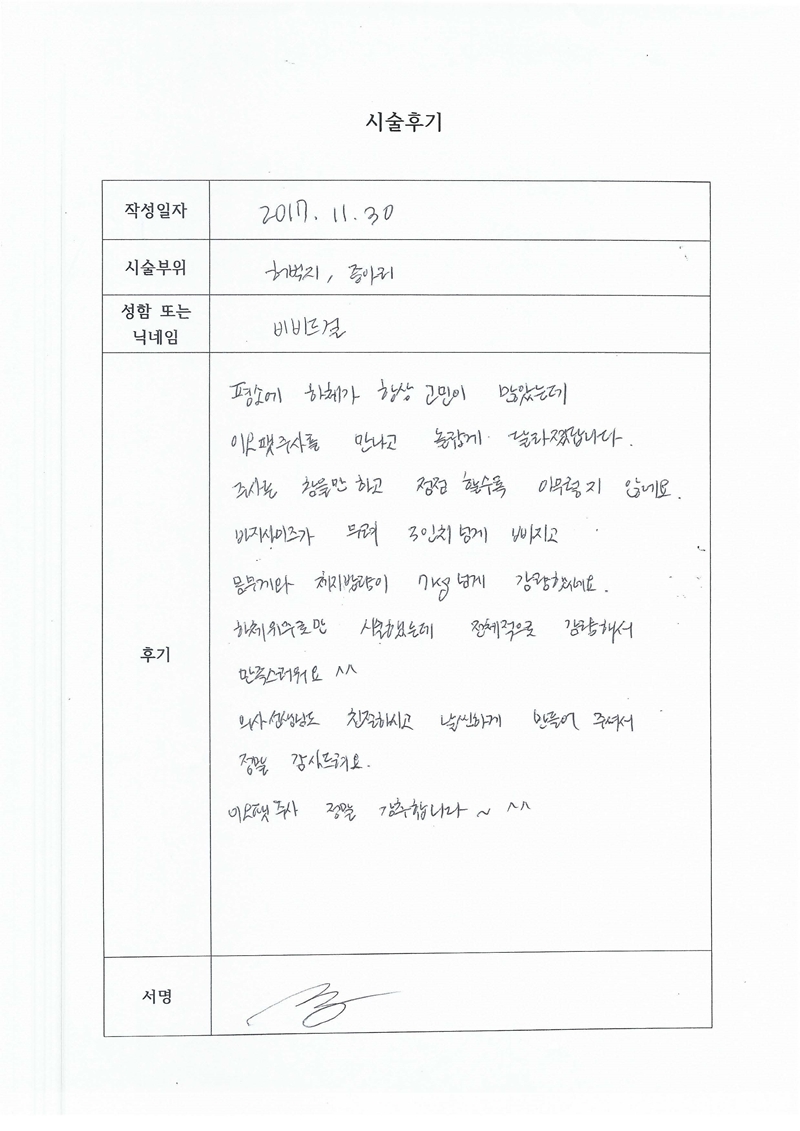 시술후기
작성일자 2017. 11. 30
시술부위 허벅지, 종아리
성함 또는
닉네임
비비드걸
후기
평소에 하체가 항상 고민이 많았는데
이오팻주사를 만나고 놀랍게 달라졌답니다.
주사는 참을만 하고 점점 할수록 아무렇지 않네요.
바지사이즈가 무려 3인치 넘게 빠지고
몸무게와 체지방량이 7kg 넘게 감량했네요.
하체위주로만 시술했는데 전체적으로 감량해서
만족스러워요 ^^
의사선생님도 친절하시고 날씬하게 만들어 주셔서
정말 감사드려요.
이오팻주사 정말 강추합니다~ ^^
서명